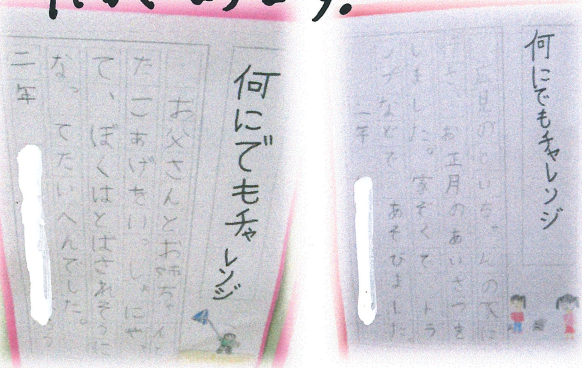 何にでもチャレンジ
お父さんとお姉ち
たこあげをいっしょにや
て、ぼくはとばされそうに
なってたいへんでした。
二年
何にでもチャレンジ
見のじいちゃんの家に
行き お正月のあいさつを
しました。家ぞくでトラ
ンプなどであそびました
二年